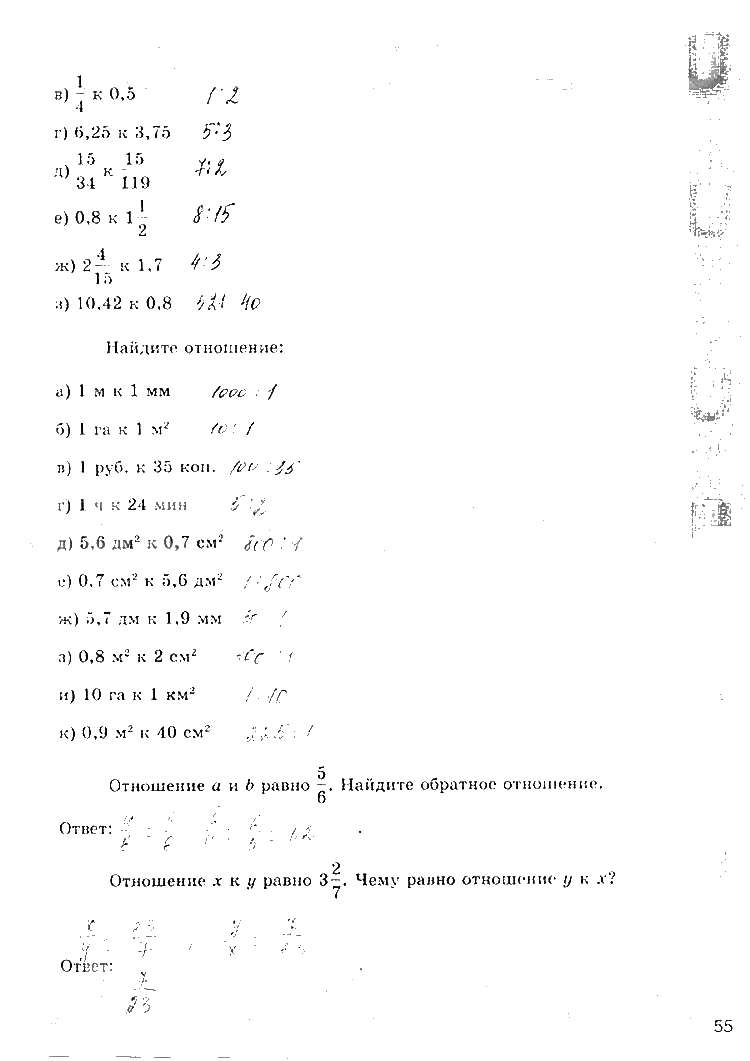 в) 1/4 к 0,5 1:2
г) 6,25 к 3,75 5:3
д) 15/34 к 15/119 7:2
е) 0,8 к 1 1/2 8:15
ж) 2 4/15 к 1,7 4:3
з) 10,42 к 0,8 521 40
Найдите отношение:
а) 1 м к 1 мм 1000 : 1
б) 1 га к 1 м² : 1
в) 1 руб. к 35 коп. 100 : 35
г) 1 ч к 24 мин 5:2
д) 5,6 дм² к 0,7 см² 800 : 1
е) 0,7 см² к 5,6 дм² 1:800
ж) 5,7 дм к 1,9 мм
з) 0,8 м² к 2 см²
и) 10 га к 1 км² 1 10
к) 0,9 м² к 40 см² 225 : 1
Отношение a и b равно 5/6. Найдите обратное отношение.
Ответ:
Отношение x к y равно 3 2/7. Чему равно отношение y к x?
x/y = 23/7, y/x = 7/23
Ответ:
7/23
55